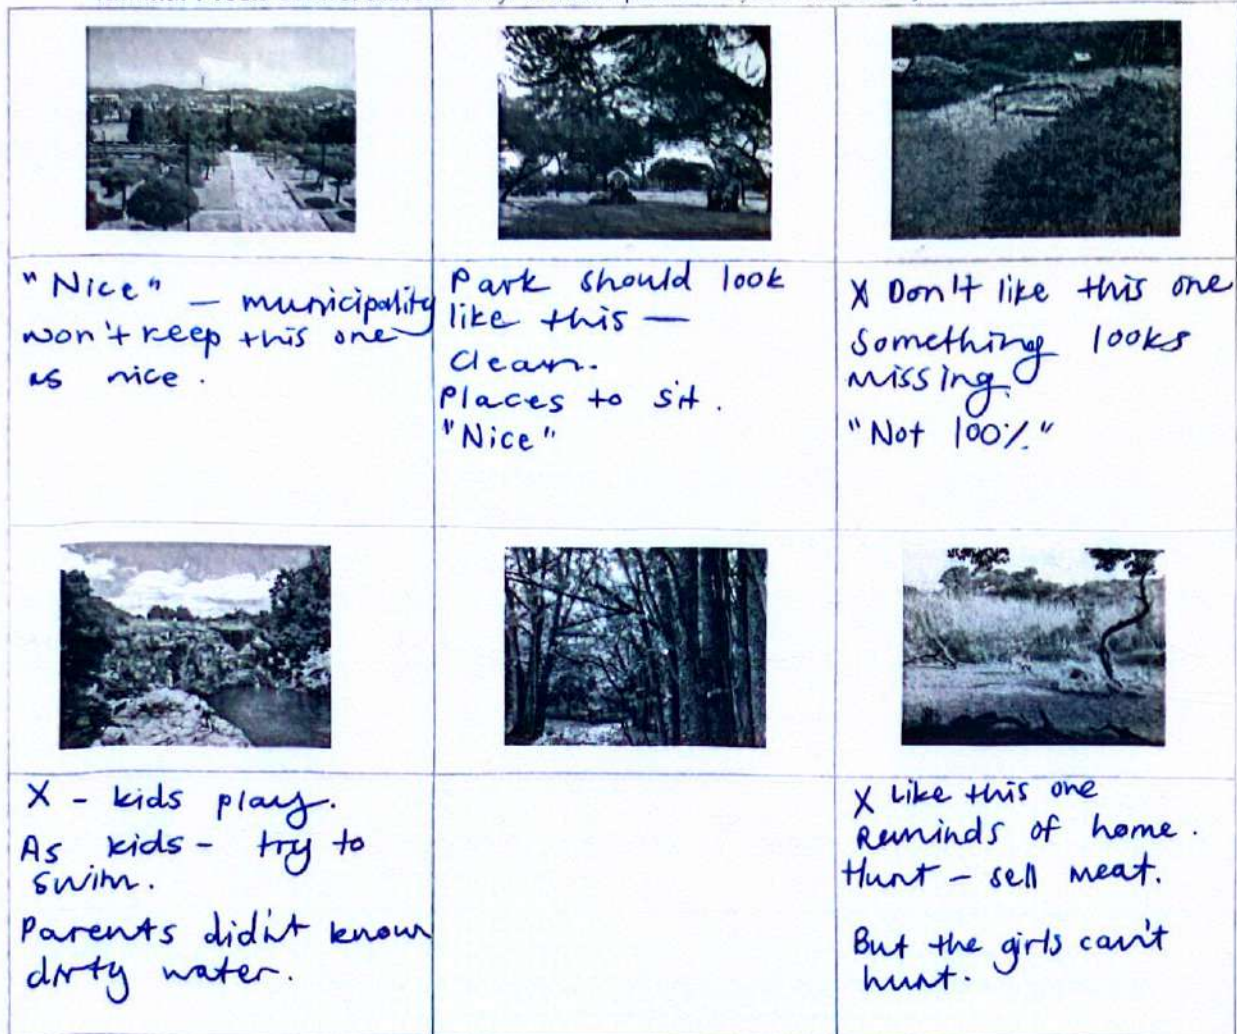 "Nice" — municipality
won't keep this one
as nice.
Park should look
like this —
Clean.
Places to sit.
"Nice"
X Don't like this one
Something looks
missing.
"Not 100%"
X - kids play.
As kids - try to
swim.
Parents didn't know
dirty water.
X Like this one
Reminds of home.
Hunt - sell meat.
But the girls can't
hunt.